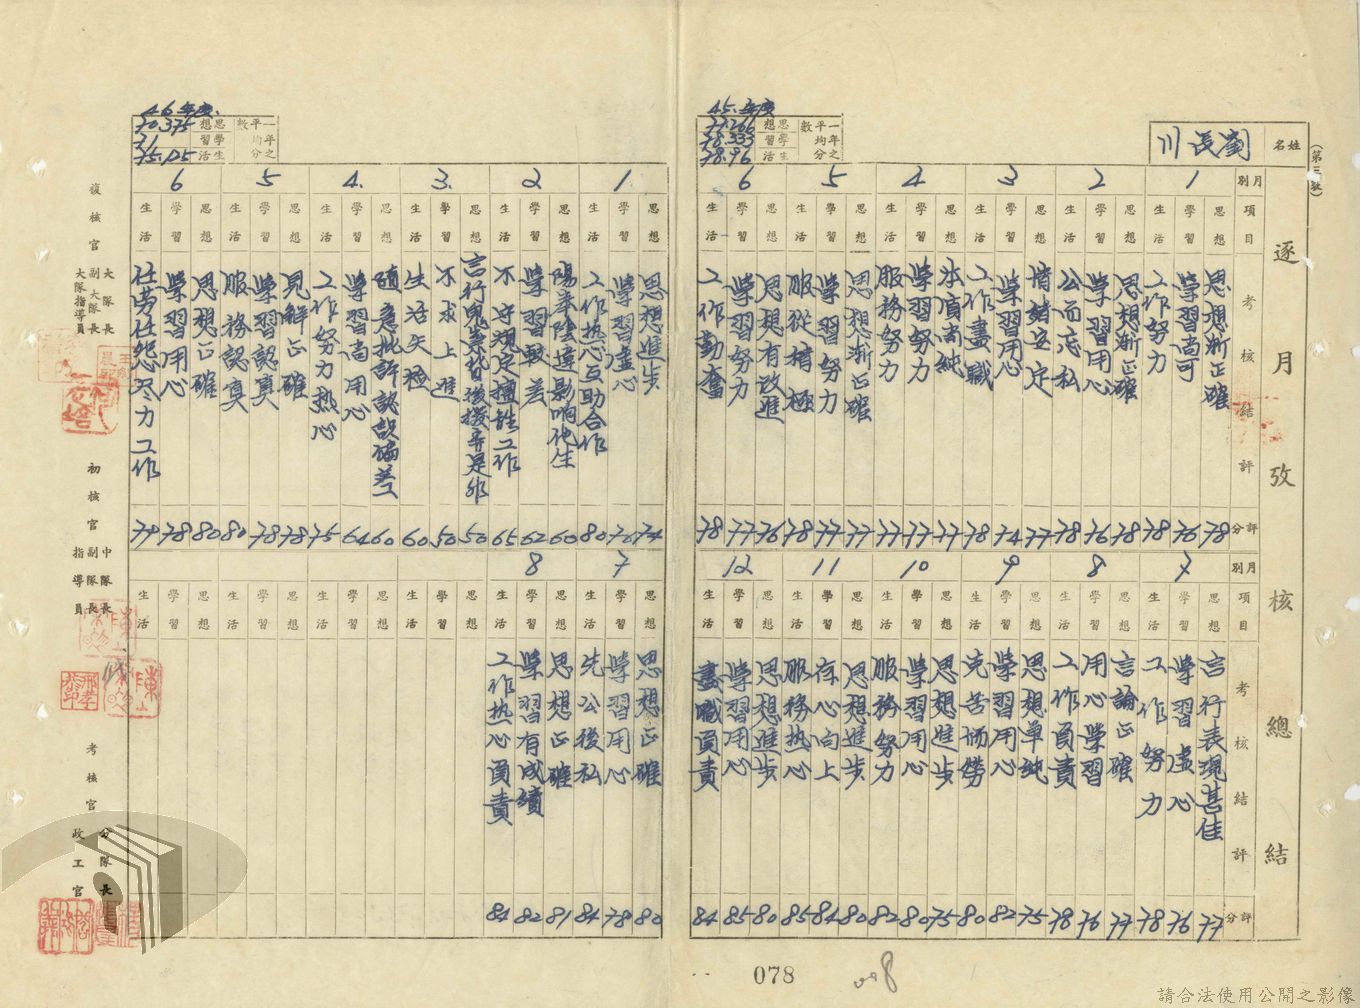 (第三號)
逐月攷核總結
姓名
劉長川
45.年度
一年之平均分數
思想 77.266
學習 78.333
生活 78.96
月別 1 2 3 4 5 6
項目 思想 學習 生活 思想 學習 生活 思想 學習 生活 思想 學習 生活 思想 學習 生活 思想 學習 生活
考核結評
思想漸正確
學習尚可
工作努力
思想漸正確
學習用心
公而忘私
情緒安定
學習用心
工作盡職
思想尚純
學習努力
服務努力
思想漸正確
學習努力
服從積極
思想有改進
學習努力
工作勤奮
評分 78 76 78 78 76 78 77 74 78 77 77 77 77 77 78 76 77 78
月別 7 8 9 10 11 12
項目 思想 學習 生活 思想 學習 生活 思想 學習 生活 思想 學習 生活 思想 學習 生活 思想 學習 生活
考核結評
言行表現甚佳
學習虛心
工作努力
言論正確
用心學習
工作負責
思想單純
學習用心
克苦耐勞
思想進步
學習用心
服務努力
思想進步
存心向上
服務热心
思想進步
學習用心
盡職負責
評分 77 76 78 77 76 78 75 82 80 75 80 82 80 84 85 80 85 84
46年度.
一年之平均分數
思想 70.375
學習 71
生活 75.125
1 2 3. 4. 5 6
思想 學習 生活 思想 學習 生活 思想 學習 生活 思想 學習 生活 思想 學習 生活 思想 學習 生活
思想進步
學習虛心
工作热心互助合作
陽奉陰違影响他生
學習較差
不守規定擅離工作
言行鬼祟背後撥弄是非
不求上進
生活失檢
隨意批評認識偏差
學習尚用心
工作努力热心
見解正確
學習認真
服務認真
思想正確
學習用心
任劳任怨尽力工作
74 76 80 60 62 65 50 50 60 60 64 75 78 78 80 80 78 77
7 8
思想 學習 生活 思想 學習 生活 思想 學習 生活 思想 學習 生活 思想 學習 生活 思想 學習 生活
思想正確
學習用心
先公後私
思想正確
學習有成績
工作热心負責
80 78 84 81 82 84
複核官
大隊長
副大隊長
大隊指導員
初核官
中隊長
副隊長
指導員
考核官
分隊長
政工官
078
008
請合法使用公開之影像